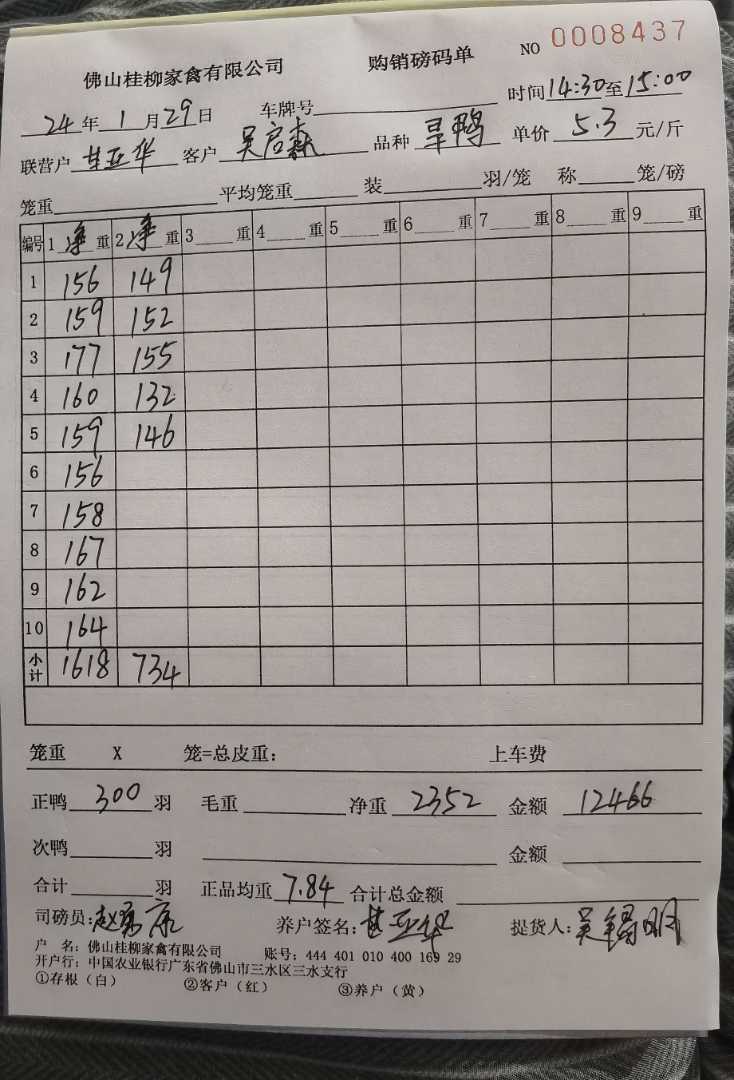 佛山桂柳家禽有限公司 购销磅码单 NO 0008437
24年1月29日 车牌号 时间14:30至15:00
联营户 甘亚华 客户 吴启森 品种 旱鸭 单价 5.3 元/斤
笼重 平均笼重 装 羽/笼 称 笼/磅
编号 1 净 重 2 净 重 3 重 4 重 5 重 6 重 7 重 8 重 9 重
1 156 149
2 159 152
3 177 155
4 160 132
5 159 146
6 156
7 158
8 167
9 162
10 164
小计 1618 734
笼重 X 笼=总皮重: 上车费
正鸭 300 羽 毛重 净重 2352 金额 12466
次鸭 羽 金额
合计 羽 正品均重 7.84 合计总金额
司磅员: 养户签名:甘亚华 提货人:吴锡明
户 名: 佛山桂柳家禽有限公司 账号: 444 401 010 400 169 29
开户行: 中国农业银行广东省佛山市三水区三水支行
①存根(白) ②客户(红) ③养户(黄)